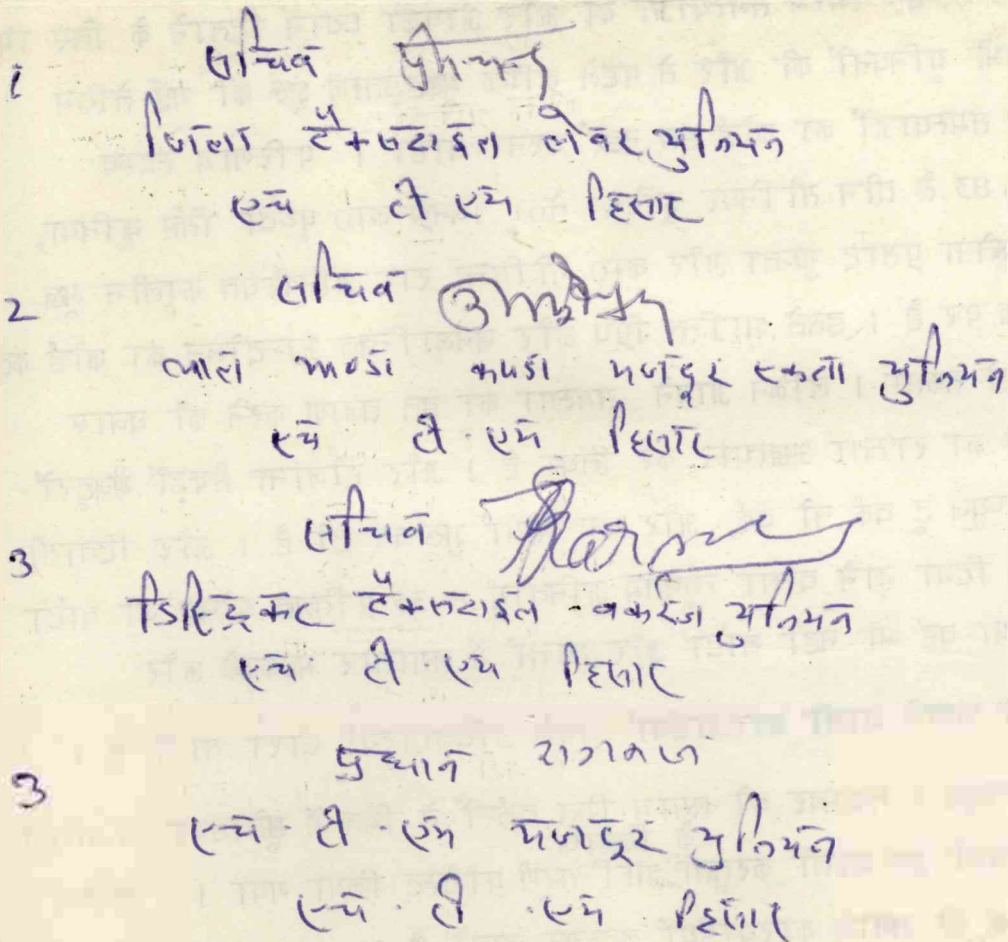 1 सचिव
जिला टैक्सटाईल लेबर युनियन
एच टी एम हिसार
2 सचिव
लाल झण्डा कपडा मजदूर एकता युनियन
एच टी एम हिसार
3 सचिव
डिस्ट्रिक्ट टैक्सटाईल वर्करज युनियन
एच टी एम हिसार
3 प्रधान
एच टी एम मजदूर युनियन
एच टी एम हिसार